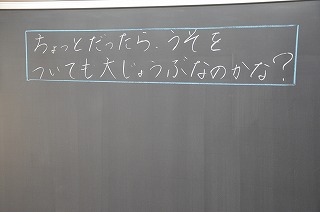 ちょっとだったら、うそを
ついても大じょうぶなのかな?